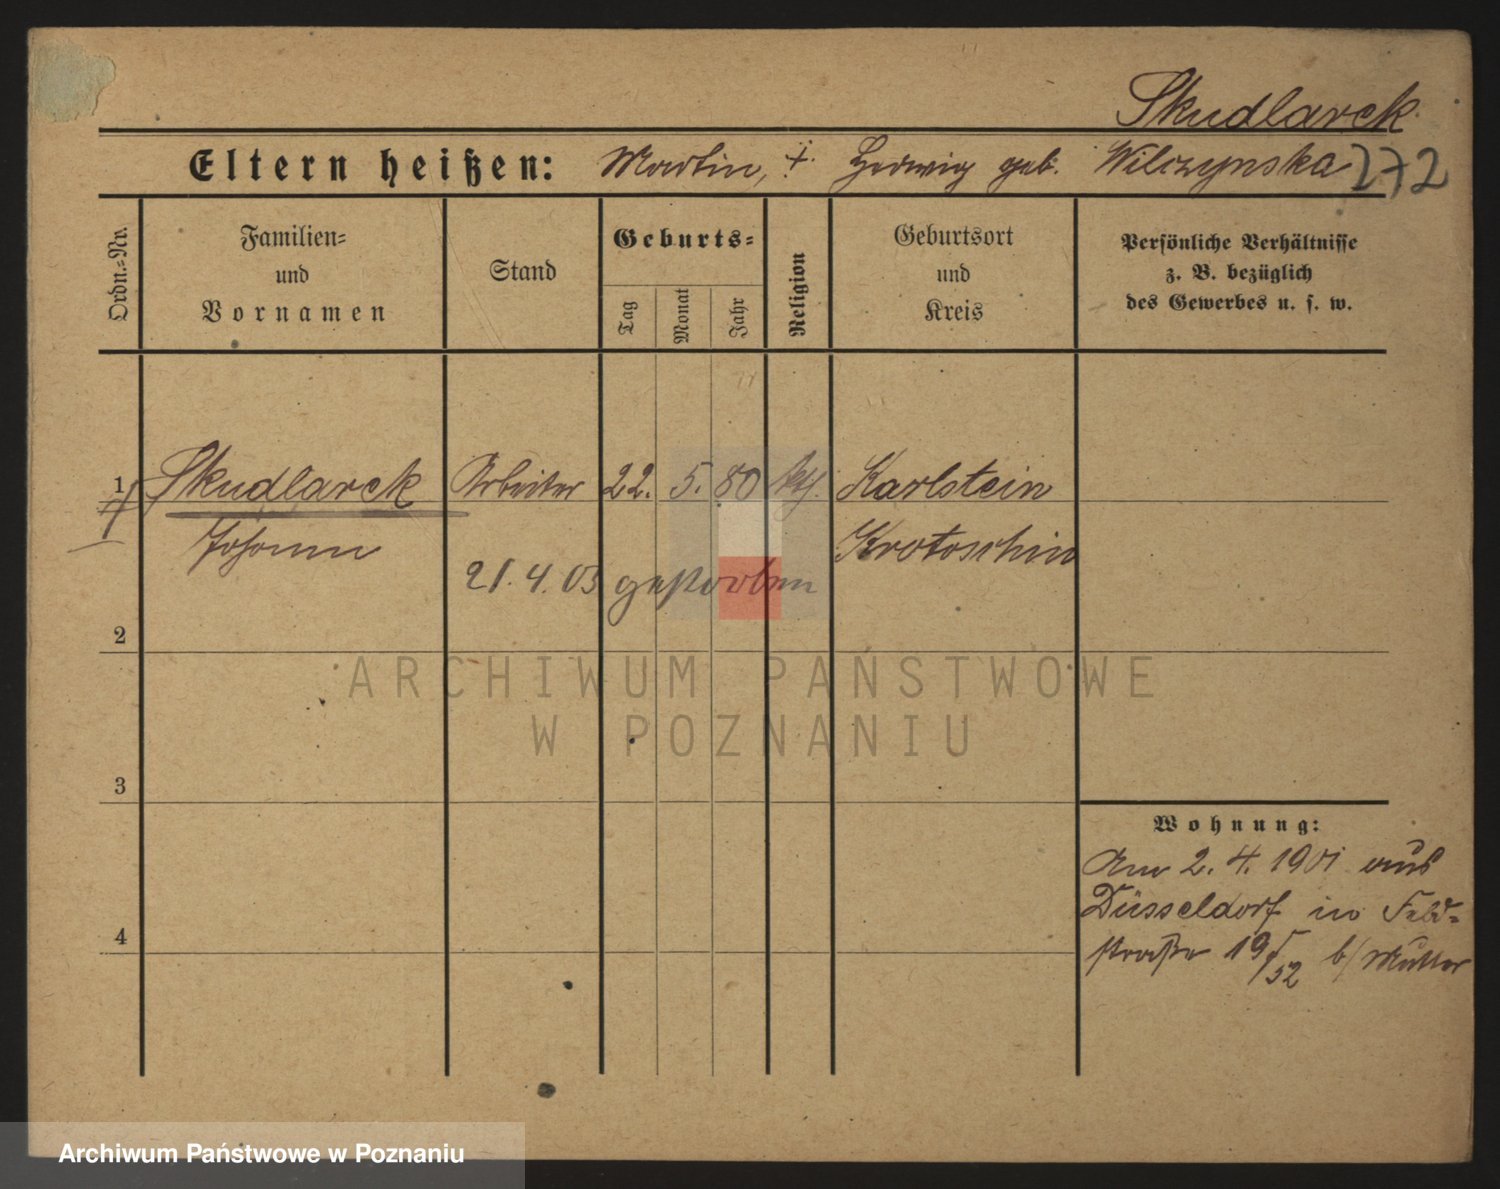 Skudlarek
Eltern heißen: Martin, †. Hedwig geb. Wilczynska 272
Ordn.=Nr.
Familien=
und
Vornamen
Stand
Geburts=
Tag
Monat
Jahr
Religion
Geburtsort
und
Kreis
Persönliche Verhältnisse
z. B. bezüglich
des Gewerbes u. s. w.
1 Skudlarek Arbeiter 22. 5. 80 kth. Karlstein
Johann Krotoschin
21. 4. 03 gestorben
2
ARCHIWUM PAŃSTWOWE
W POZNANIU
3
Wohnung:
Am 2. 4. 1901 aus
Düsseldorf in Feld=
straße 19/52 b/Mutter
4
Archiwum Państwowe w Poznaniu